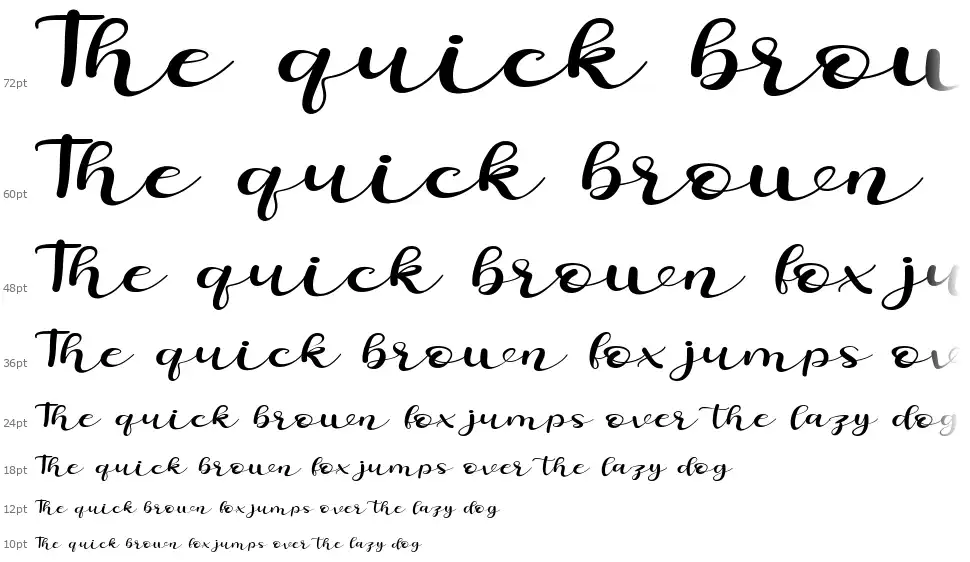 72pt The quick brou
60pt The quick brown
48pt The quick brown fox ju
36pt The quick brown fox jumps ov
24pt The quick brown fox jumps over the lazy dog
18pt The quick brown fox jumps over the lazy dog
12pt The quick brown fox jumps over the lazy dog
10pt The quick brown fox jumps over the lazy dog